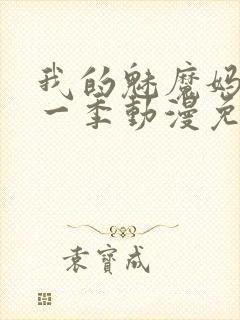 我的魅魔妈
一季動漫免
袁寶成